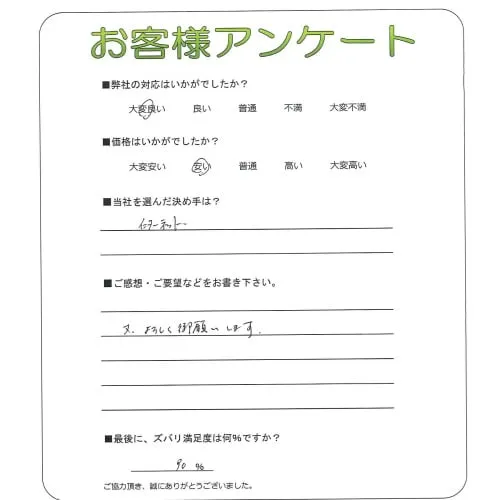 お客様アンケート
■弊社の対応はいかがでしたか？
大変良い 良い 普通 不満 大変不満
■価格はいかがでしたか？
大変安い 安い 普通 高い 大変高い
■当社を選んだ決め手は？
インターネット
■ご感想・ご要望などをお書き下さい。
又、よろしく御願いします。
■最後に、ズバリ満足度は何%ですか？
90 %
ご協力頂き、誠にありがとうございました。